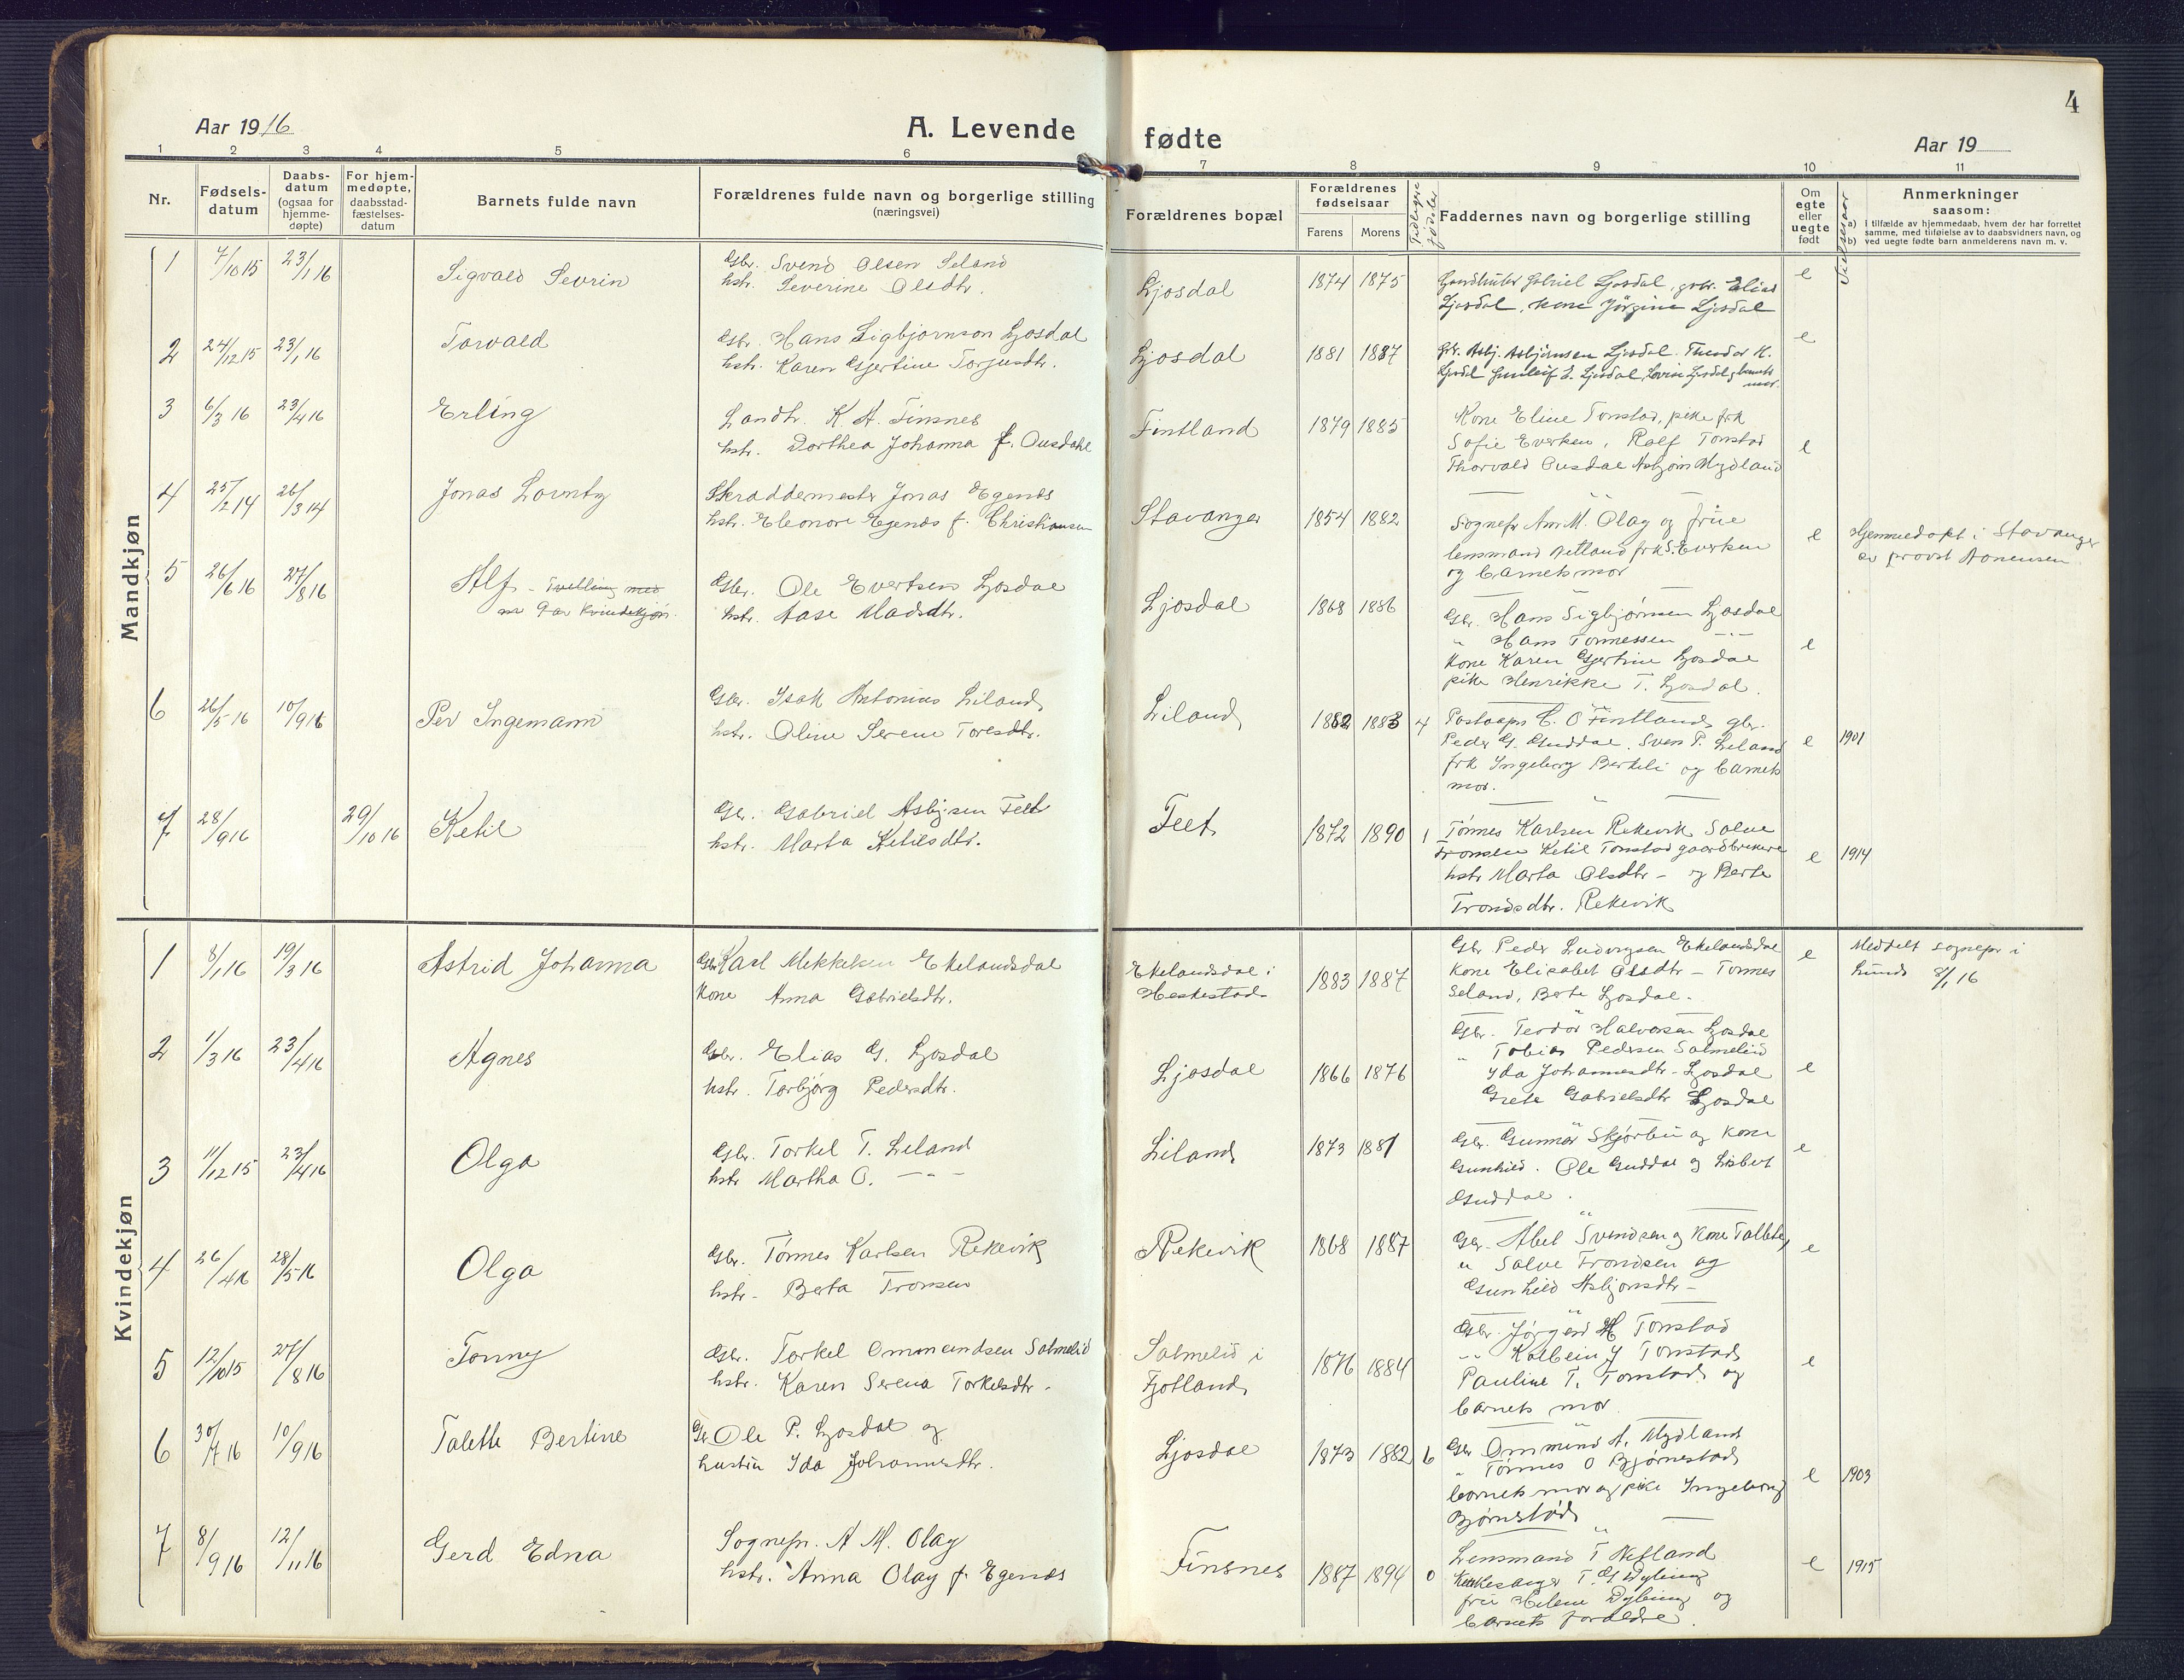 4
Aar 1916
A. Levende fødte
Aar 19
1 2 3 4 5 6 7 8 9 10 11
Nr.
Fødsels-
datum
Daabs-
datum
(ogsaa for
hjemme-
døpte)
For hjem-
medøpte,
daabsstad-
fæstelses-
datum
Barnets fulde navn
Forældrenes fulde navn og borgerlige stilling
(næringsvei)
Forældrenes bopæl
Forældrenes
fødselsaar
Farens Morens
Tidligere
fødsler
Faddernes navn og borgerlige stilling
Om
egte
eller
uegte
født
Vielsesaar
Anmerkninger
saasom:
a) I tilfælde av hjemmedaab, hvem der har forrettet
samme, med tilføielse av to daabsvidners navn, og
b) ved uegte fødte barn anmelderens navn m. v.
Mandkjøn
1 7/10 15 23/1 16 Sigvald Severin
Gbr. Svend Olsen Seland
hstr. Severine Olsdtr.
Ljosdal 1874 1875
Handelsbr Gabriel Ljosdal, gbr. Elias
Ljosdal, kone Jörgine Ljosdal
e
2 24/12 15 23/1 16 Torvald
Gbr. Hans Sigbjørnson Ljosdal
hstr. Karen Gjertine Torjusdtr.
Ljosdal 1881 1887
Gbr. Asbj. Asbjørnsen Ljosdal. Theodor H.
Ljosdal Gunleif E. Ljosdal, Lovise Ljosdal og barnets
mor.
e
3 6/3 16 23/4 16 Erling
Landh. K. A. Finsnes
hstr. Dorthea Johanna f. Ousdahl
Fintland 1879 1885
Kone Eline Tonstad, pike frk
Sofie Evertsen, Rolf Tonstad
Thorvald Ousdal Asbjørn Mydland
e
4 25/2 14 26/3 14 Jonas Lorentz
Skreddermester Jonas Egenes
hstr. Eleonore Egenes f. Christiansen
Stavanger 1854 1882
Sognepr A. M. Olay og frue
lensmand Netland frk S. Evertsen
og barnets mor
e
Hjemmedøpt i Stavanger
av provst Aonensen
5 26/6 16 27/8 16 Alf - Tvilling med
nr 9 av kvindekjøn.
Gbr. Ole Evertsen Ljosdal
hstr. Aase Madsdtr.
Ljosdal 1868 1886
Gbr. Hans Sigbjørnsen Ljosdal
" Hans Tønnessen - " -
Kone Karen Gjertine Ljosdal
pike Henrikke T. Ljosdal.
e
6 26/5 16 10/9 16 Per Ingemann
Gbr. Isak Antonius Liland
hstr. Oline Serene Toresdtr.
Liland 1882 1883 4
Postaapn C. O Fintland gbr.
Peder G. Guddal. Sven P. Liland
frk Ingeborg Berkeli og barnets
mor.
e 1901
7 28/9 16 29/10 16 Ketil
Gbr. Gabriel Asbjsen Feet
hstr. Marta Ketilsdtr.
Feet 1872 1890 1
Tönnes Karlsen Rekevik Salve
Tronsen Ketil Tonstad gaardbrukere
hstr Marta Olsdtr - og Berte
Trondsdtr. Rekevik
e 1914
Kvindekjøn
1 8/1 16 19/3 16 Astrid Johanna
Gbr Karl Mikkelsen Ekelandsdal
Kone Anna Gabrielsdtr.
Ekelandsdal i
Heskestad 1883 1887
Gbr Peder Ludvigsen Ekelandsdal
Kone Elisabet Olsdtr - Tønnes
Seland, Berte Ljosdal.
e
Meddelt sognepr i
Lund 8/1 16
2 1/3 16 23/4 16 Agnes
Gbr. Elias G. Ljosdal
hstr. Torbjørg Pedersdtr.
Ljosdal 1866 1876
Gbr. Teodor Halvorsen Ljosdal
" Tobias Pedersen Salmelid
Ida Johannesdtr - Ljosdal
Grete Gabrielsdtr Ljosdal
e
3 11/12 15 23/4 16 Olga
Gbr. Torkel T. Liland
hstr Martha O. - " -
Liland 1873 1881
Gbr. Gunnar Skjørbu og kone
Gunhild. Ole Guddal og Lisbet
Guddal.
e
4 26/4 16 28/5 16 Olga
Gbr. Tønnes Karlsen Rekevik
hstr - Berta Tronsen
Rekevik 1868 1887
Gbr. Abel Svendsen og kone Tallette,
" Salve Trondsen og
Gunhild Asbjørnsdtr -
e
5 12/10 15 27/8 16 Tonny
Gbr. Torkel Ommundsen Salmelid
hstr. Karen Serena Torkelsdtr.
Salmelid i
Fjotland 1876 1884
Gbr. Jørgen H Tonstad
" Kolbein J Tonstad
Pauline T. Tonstad og
barnets mor
e
6 30/7 16 10/9 16 Talette Bertine
Gbr Ole P. Ljosdal og
hustru Ida Johannesdtr.
Ljosdal 1873 1882 6
Gbr Ommund A. Mydland
" Tønnes O Bjørnestad
barnets mor og pike Ingeborg
Bjørnestad
e 1903
7 8/9 16 12/11 16 Gerd Edna
Sognepr. A M. Olay
hstr. Anna Olay f. Egenes
Finsnes 1887 1894 0
Lensmand T Netland
Kirkesanger T. G Dybing
frue Helene Dybing og
barnets foraldre.
e 1915